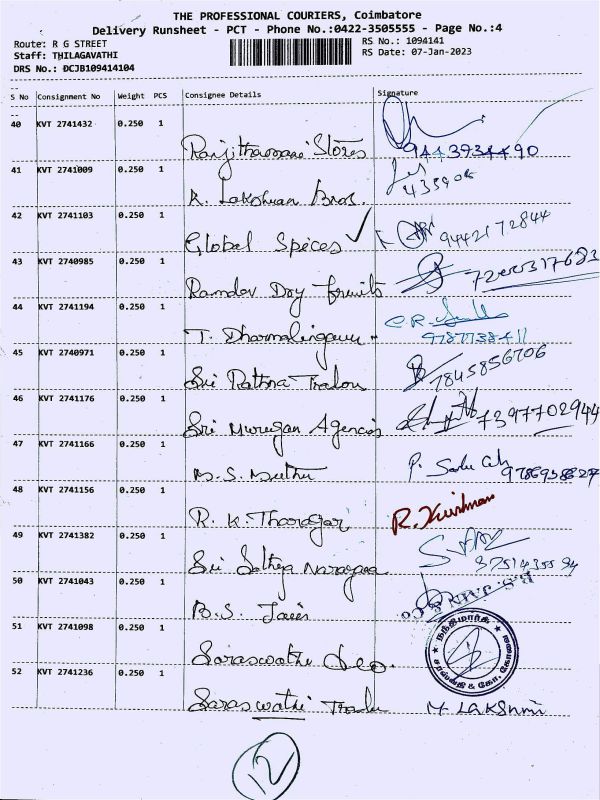 THE PROFESSIONAL COURIERS, Coimbatore
Delivery Runsheet - PCT - Phone No.:0422-3505555 - Page No.:4
Route: R G STREET
RS No.: 1094141
Staff: THILAGAVATHI
RS Date: 07-Jan-2023
DRS No.: DCJB109414104
S No Consignment No Weight PCS Consignee Details Signature
40 KVT 2741432 0.250 1
Ranjithamani Stores 9443934490
41 KVT 2741009 0.250 1
R. Lakshman Bros. 435906
42 KVT 2741103 0.250 1
Global Spices 9442172844
43 KVT 2740985 0.250 1
Ramdev Dry fruits
44 KVT 2741194 0.250 1
T. Dharmalingam C.R.
45 KVT 2740971 0.250 1
Sri Rathna 7845856706
46 KVT 2741176 0.250 1
Sri Murugan Agencies 7397702944
47 KVT 2741166 0.250 1
B.S. Muthu P.
48 KVT 2741156 0.250 1
R. K. Tharagar R. Krishnan
49 KVT 2741382 0.250 1
Sri Sathya Narayana
50 KVT 2741043 0.250 1
B.S. Jain
51 KVT 2741098 0.250 1
Saraswathi &co.
52 KVT 2741236 0.250 1
Saraswathi M. LAKSHMI
12